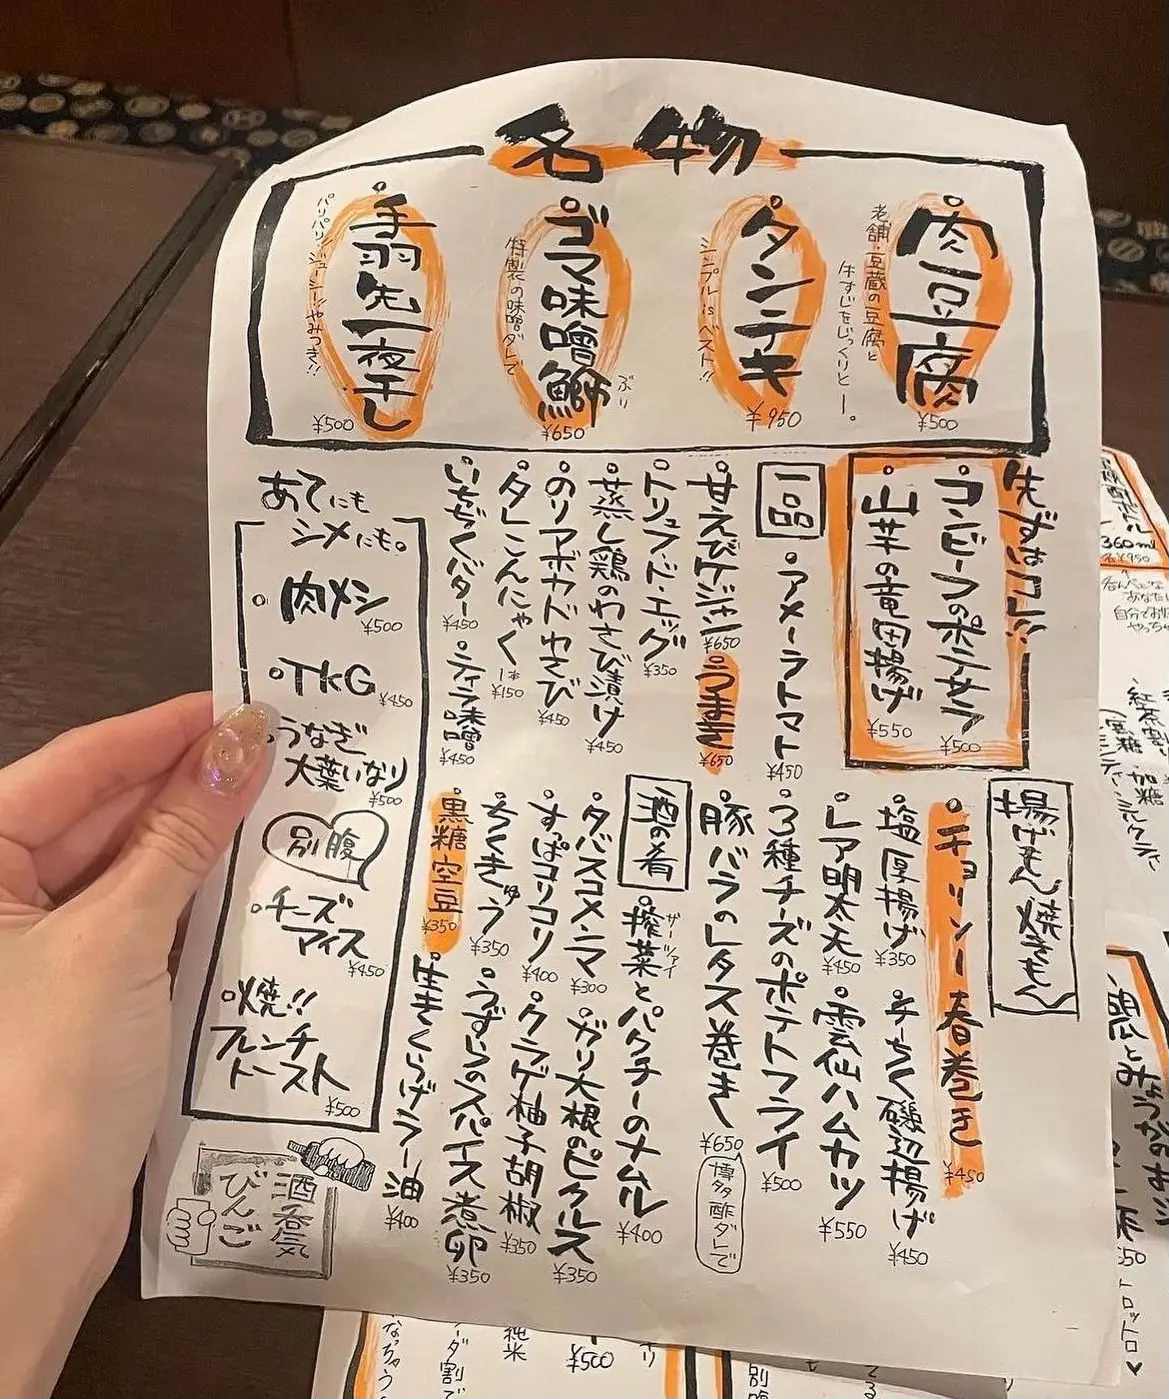 名物
肉豆腐
老舗・豆蔵の豆腐と
牛すじをじっくりとー。
¥500
タンテキ
シンプル is ベスト!!
¥950
ゴマ味噌鰤
ぶり
特製の味噌ダレで
¥650
手羽先一夜干し
パリパリジューシーやみつき!!
¥500
先ずはコレ!!
コンビーフのポテサラ
¥500
山芋の竜田揚げ
¥550
一品
アメーラトマト
¥450
甘えびケジャン
¥650
うまき
¥650
トリュフ・ド・エッグ
¥350
蒸し鶏のわさび漬け
¥450
のりアボカドわさび
¥450
タレこんにゃく
1本
¥150
いちじくバター
¥450
ティラ味噌
¥450
揚げもん焼きもん
チョリソー春巻き
¥450
塩厚揚げ
¥350
チーちく磯辺揚げ
¥450
レア明太天
¥450
雲仙ハムカツ
¥550
3種チーズのポテトフライ
¥500
豚バラのレタス巻き
¥650
博多酢ダレで
酒の肴
搾菜とパクチーのナムル
ザーツァイ
¥400
タバスコメンマ
¥300
ガリ大根のピクルス
¥350
すっぱコリコリ
¥400
クラゲ柚子胡椒
¥350
ちくきゅう
¥350
うずらのスパイス煮卵
¥350
黒糖空豆
¥350
生きくらげラー油
¥400
あてにも
シメにも。
肉メシ
¥500
TKG
¥450
うなぎ
大葉いなり
¥500
別腹
チーズ
アイス
¥450
焼!!
フレンチ
トースト
¥500
酒呑気
びんご
360ml
¥950
自分でお
やっちゃ
加糖
純米
¥500
トロットロ♥